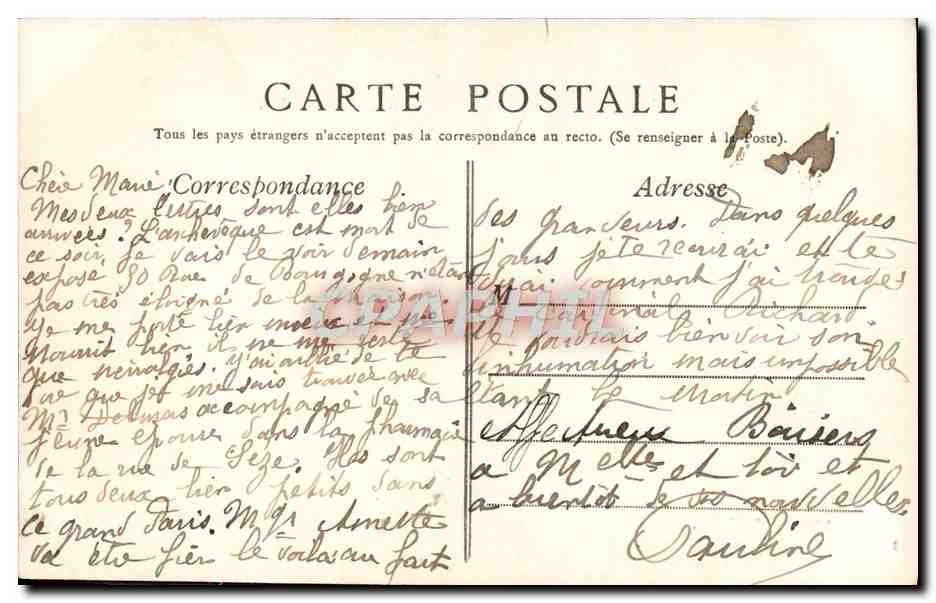 CARTE POSTALE
Tous les pays étrangers n'acceptent pas la correspondance au recto. (Se renseigner à la Poste).
Correspondance
Adresse
M
Chère Marie
Mes deux lettres sont elles bien
arrivées? L'archevêque est mort de
ce soir, je vais le voir demain
exposé 50 Rue de Bourgogne n'étant
pas très éloigné de la maison.
Je me porte bien mieux et me
nourrit bien il ne me reste
que névralgies. J'ai oublié de te
dire que je me suis trouvée avec
Mr accompagné de sa
jeune épouse dans la pharmacie
de la rue de Sèze. Ils sont
tous deux bien petits dans
ce grand Paris. Mgr Amette
va être fier le voilà au fait
des grandeurs. Dans quelques
jours je te reverrai et te
dirai comment j'ai trouvé
le Cardinal Richard
Je voudrais bien voir son
inhumation mais impossible
étant le matin
Affectueux Baisers
a Melle et toi et
a bientôt de vos nouvelles.
Pauline
DELCAMPHIL